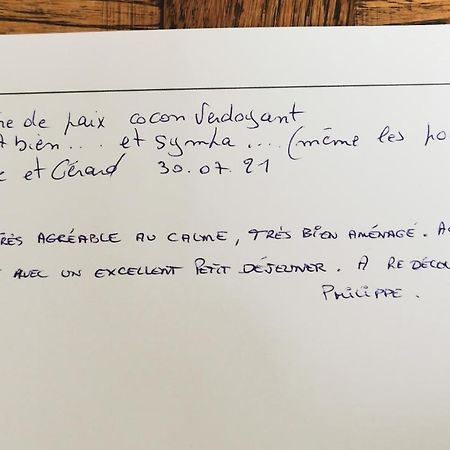 de paix cocon verdoyant
bien... et sympa.... (même les
et Gérard 30.07.21
TRÈS AGRÉABLE AU CALME, TRÈS BIEN AMÉNAGÉ.
AVEC UN EXCELLENT PETIT DÉJEUNER. A REDÉCOU
PHILIPPE.